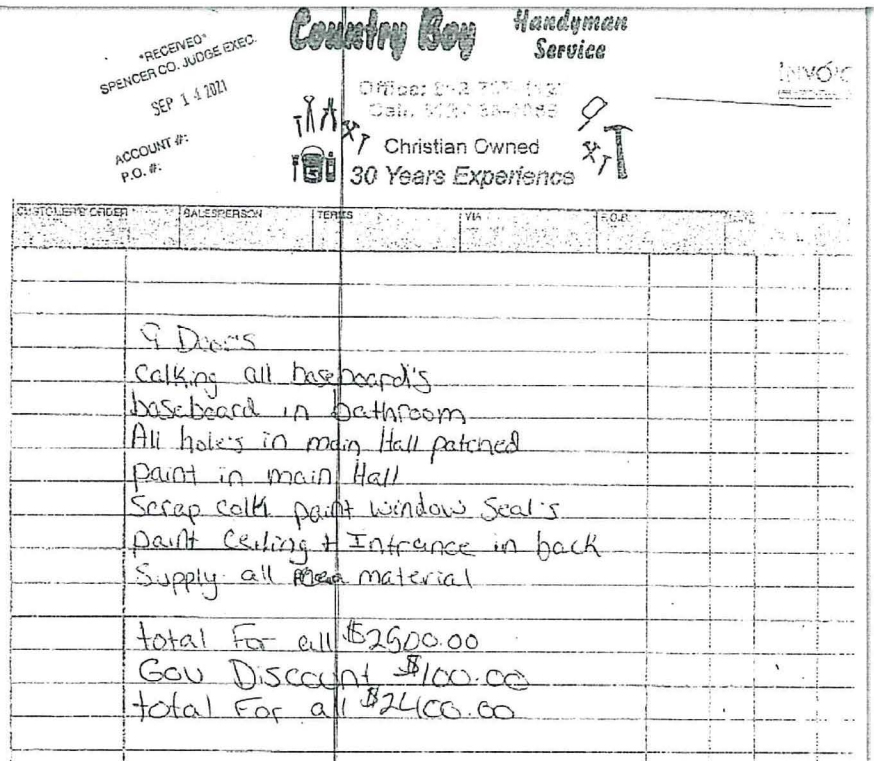 Country Boy Handyman Service
*RECEIVED*
SPENCER CO. JUDGE EXEC.
SEP 14 2021
ACCOUNT #:
P.O. #:
INVOIC
Office:
Cell:
Christian Owned
30 Years Experience
CUSTOMER'S ORDER SALESPERSON TERMS VIA F.O.B.
9 Doors
Calking all baseboard's
baseboard in bathroom
All hole's in main Hall patched
paint in main Hall
Scrap calk paint window Seal's
paint Ceiling + Intrance in back
Supply all material
total For all $2500.00
Gov Discount $100.00
total For all $2400.00